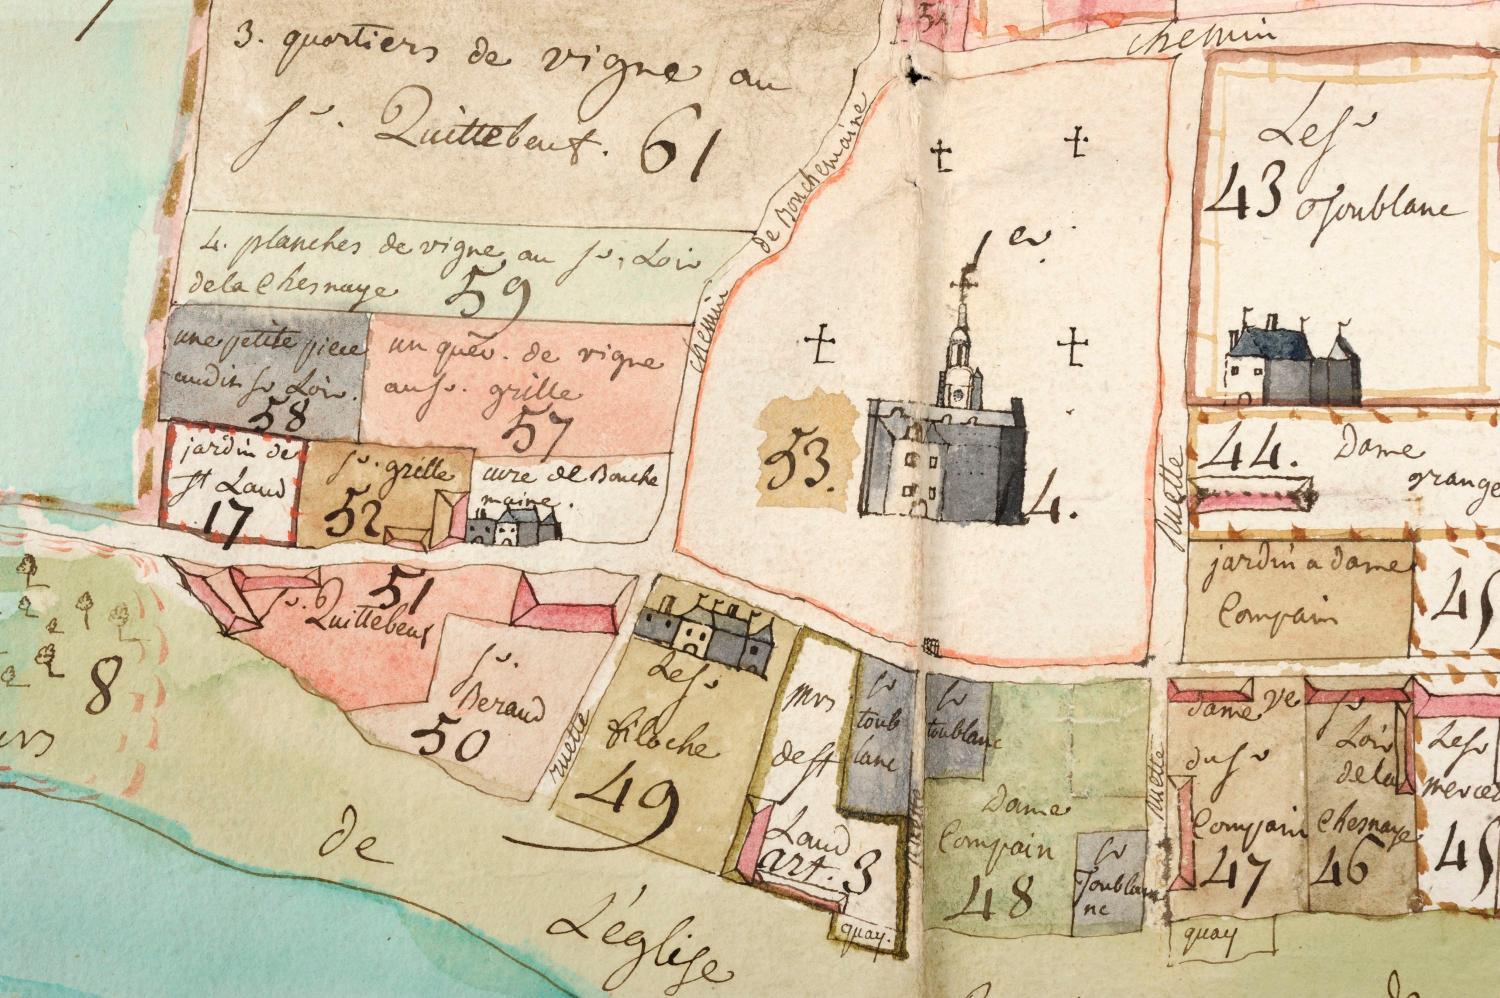 3. quartiers de vigne au
Sr. Quittebeuf. 61
4. planches de vigne au Sr. Loir
dela Chesnaye 59
une petite piece
audit Sr Loir.
58
un quer. de vigne
au Sr. grille
57
jardin de
St Laud
17
Sr. grille
52
cure de Bouche
maine.
chemin de Bouchemaine
chemin
54
er.
53.
4.
Le Sr
43 Joublanc
44. Dame
grange
jardin a dame
Compain
45
ruette
51
Sr. Quittebeuf
Sr.
Beraud
50
ruette
Le Sr
filoche
49
mrs
de St
Laud
art. 3
quay.
Sr
Joub
lanc
ruette
Sr
Joublanc
Dame
Compain
48
Sr
Joubla
nc
ruette
dame ve
du Sr
Compain
47
Sr
Loir
dela
Chesnaye
46
Le Sr
mercer
45
quay
8
de
L'église